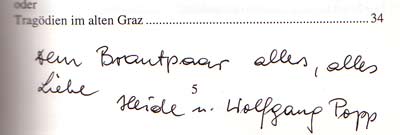 oder
Tragödien im alten Graz ..................................................................... 34
dem Brautpaar alles, alles
Liebe
5
Heide u. Wolfgang Popp